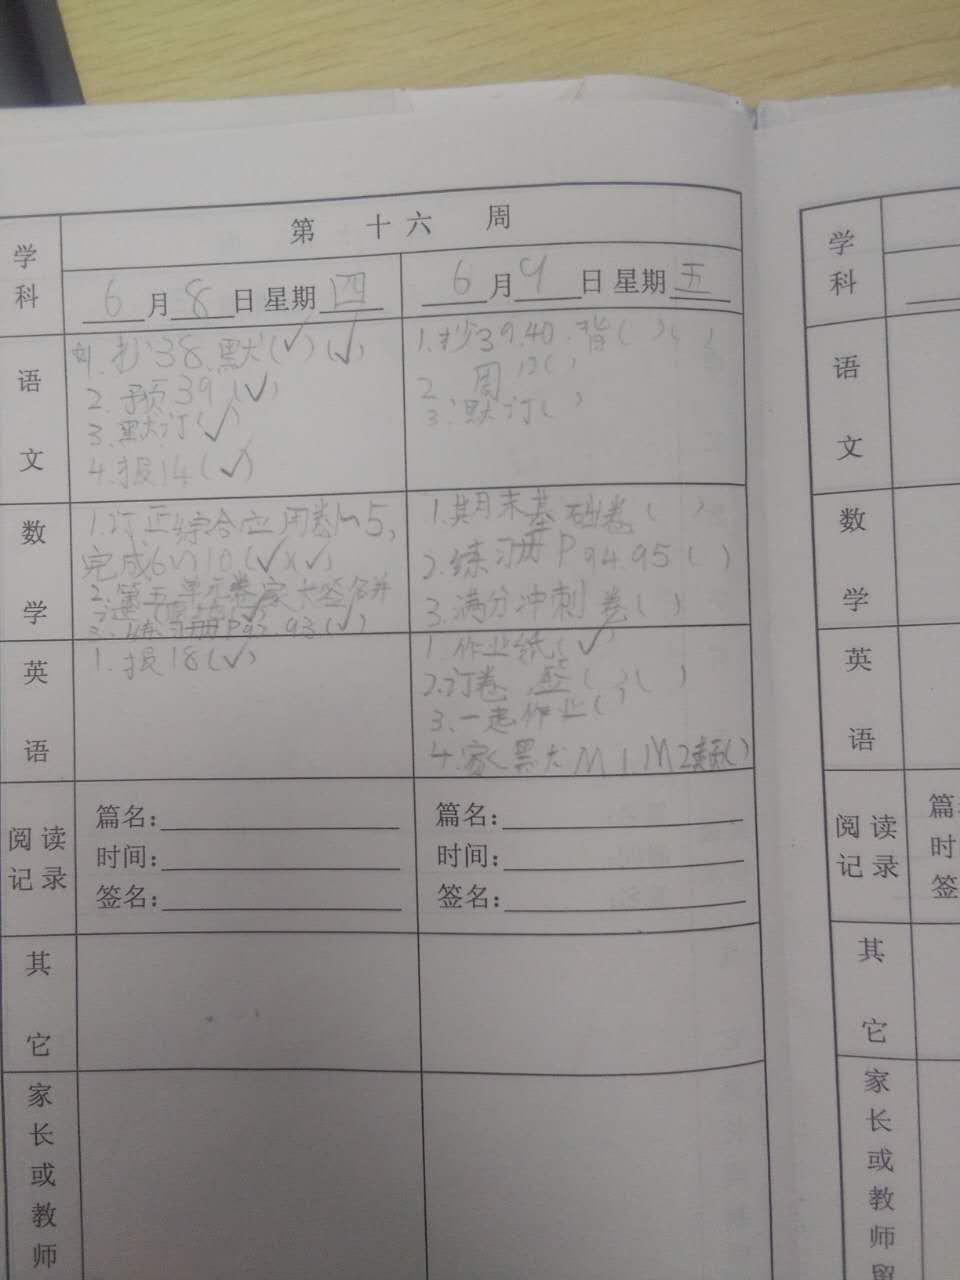 学科
第 十六 周
6月8日 星期四
6月9日 星期五
语文
1.抄38.默(√)(√)
2.预39(√)
3.默订(√)
4.报14(√)
1.抄39.40.背( )( )
2.周
3.默订( )
数学
1.订正综合应用卷1~5,
完成6~10(√)(√)
2.第五单元卷家长签名并
3.练习册P92.93(√)
1.期末基础卷( )
2.练习册P94.95( )
3.满分冲刺卷( )
英语
1.报18(√)
1.作业纸(√)
2.订卷 签( )( )
3.一起作业( )
4.家默M1.M2
阅读记录
篇名:
时间:
签名:
篇名:
时间:
签名:
其它
家长或教师
学科
语文
数学
英语
阅读记录
篇
时
签
其它
家长或教师留